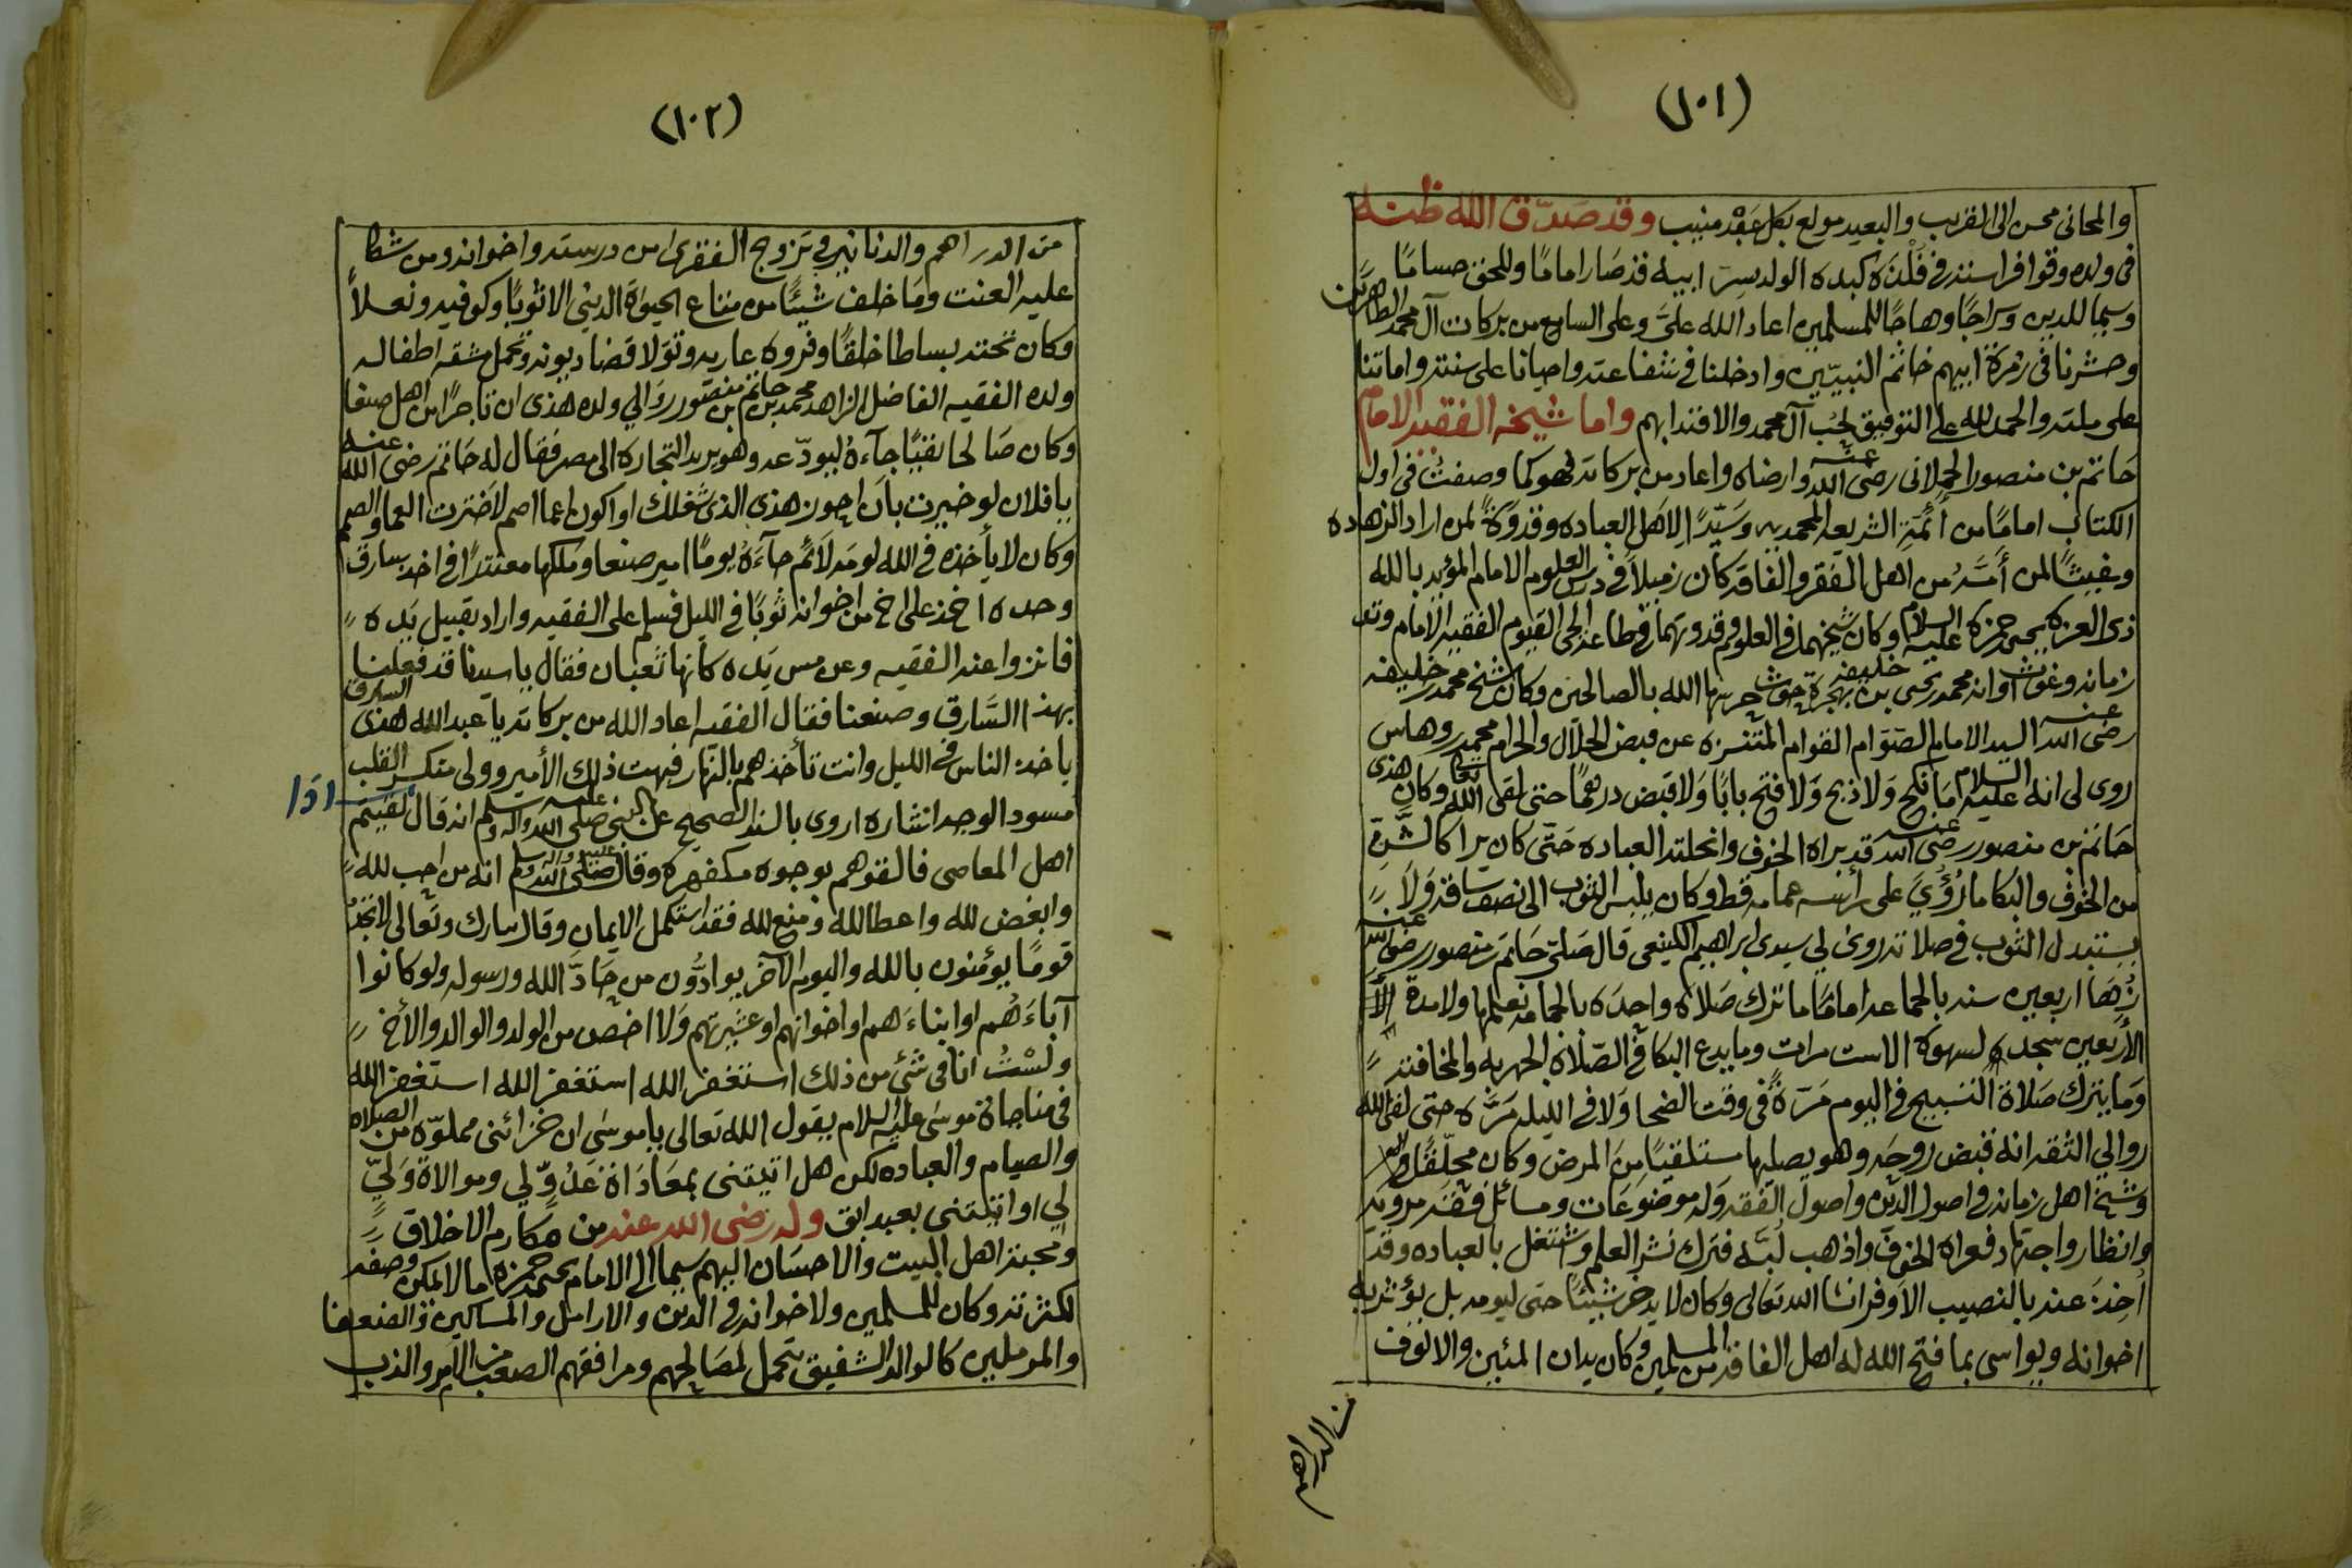 (١٠١)
والمحاني محسن الى القريب والبعيد مولع بكل عبد منيب وقد صدّق الله ظنه
في ولده وقوا فراسته في فلذة كبده الولد سِرّ ابيه قد صَار امامًا وللحق حسامًا
وسيما للدين وسراجًا وهاجًا للمسلمين اعاد الله عليَّ وعلى السامع من بركات آل محمد الطاهرين
وحشرنا في زمرة ابيهم خاتم النبيّين وادخلنا في شفاعته واحيانا على سنته واماتنا
على ملته والحمد لله على التوفيق لحب آل محمد والاقتدا بهم واما شيخه الفقيه الامام
حَاتم بن منصور الحملاني رضى الله عنه وارضاه واعاد من بركاته فهو كما وصفتُ في اول
الكتاب امامًا من أئمة الشريعه المحمديه وسَيّدًا لاهل العباده وقدوَةً لمن اراد الزهاده
ومغيثًا لمن أمَّهُ من اهل الفقر والفاقه كان زميلاً في درس العلوم الامام المؤيد بالله
ذى العزه يحيى بن حمزه عليه السلام وكان شيخهما في العلوم وقدوتهما في طاعة الحي القيوم الفقيه الامام وتد
زمانه وغوث اوانه محمد بن خليفه بهجرة حوث حرسها الله بالصالحين وكان شيخ محمد بن خليفه
رضى الله عنه السيد الامام الصَوّام القوام المتنزه عن قبض الحلال والحرام محمد بن وهاس
روى لي انه عليه السلام ما نكح وَلا ذبح وَلا فتح بابًا وَلا قبض درهمًا حتى لقى الله تعا وكان هذى
حَاتم بن منصور رضى الله عنه قد براه الخوف وانحلته العباده حَتّى كان يرا كالشَّنّ
من الخوف والبكا ما رُؤيَ على رأسه عمامه قط وكان يلبس الثوب الى نصف ساقه وَلا
يستبدل الثوب في صلاته روى لي سيدى ابراهيم الكينعي قال صَلّى حَاتم بن منصور رضى الله عنه
زُهَا اربعين سنه بالجماعه اماماً ما ترك صَلاه واحدَه بالجماعه نعلمها ولا مدة
الأربعين سجد لسهوه الا ست مرات وما يدع البكا في الصّلاه الجهريه والمخافته
وَما يترك صَلاة التسبيح في اليوم مَرّةً في وقت الضحا وَلا في الليله مَرَّه حتى لقى الله
روا لي الثقه انه قبض روحه وهو يصليها مستلقيًا مِنَ المرض وكان محلّقًا
وشيخ اهل زمانه في اصول الدين واصول الفقه وَله موضوعَات ومسائل فقهيه مرويه
وانظار واجتهاد فعراه الخوف واذهب لُبَّه فترك نشر العلم واشتغل بالعباده وقد
اُخِذَ عنه بالنصيب الأوفر انشا الله تعَالى وكان لا يدخر شيئًا حتى ليومه بل يؤثر به
اخوانه ويواسي بما فتح الله له اهل الفاقه من المسلمين وكان يدان المئين والالوف
من الدراهم
(١٠٢)
من الدراهم والدنانير في تزوج الفقرى من درسته واخوانه ومن شكا
عليه العنت ومَا خلف شيئًا من متاع الحيوة الدني الا ثوبًا وكوفيه ونعلاً
وكان تحته بساطا خلقًا وفروه عاريه وتوَلا قضا ديونه وتحمل مشقه اطفاله
ولده الفقيه الفاضل الزاهد محمد بن حَاتم بن منصور روَا لي ولده هذى ان تاجرًا من اهل صنعا
وكان صَالحا نقيًا جآءهُ ليودّعه وهو يريد التجاره الى مصر فقال له حَاتم رضى الله عنه
يا فلان لو خيرت بأن احوز هذى الذى شغلك او اكون اعما اصم لاخترت العما والصمم
وكان لا يأخذه في الله لومَه لآئم جآءَهُ يومًا امير صنعا ومَلكها معتذرًا في اخذ سارق
وحده اخذ على اخ من اخوانه ثوبًا في الليل فسلم على الفقيه واراد تقبيل يَده
فانزوا عنه الفقيه وعن مس يَده كأنها ثعبان فقال يا سيدنا قد فعلنا
بهذا السَّارق وصنعنا فقال الفقيه اعاد الله من بركاته يا عبد الله هذى السارق
يأخذ الناس في الليل وانت تأخذهم بالنّهار فبهت ذلك الأمير وولى منكسر القلب
مسود الوجه اشاره اروى بالسند الصحيح عن النبي صلى الله عليه واله وسلم انه قال اذا لقيتم
اهل المعاصي فالقوهم بوجوه مكفهره وقال صلى الله عليه واله وسلم انه من احب لله
وابغض لله واعطا لله ومنع لله فقد استكمل الإيمان وقال تبارك وتعالى لا تجدُ
قومًا يؤمنون بالله واليوم الآخر يوادُّون من حَادّ الله ورسوله ولو كانوا
آباءَهُم او ابناءَهم او اخوانهم او عشيرتهم وَلا اخص من الولد والوالد والأخ
ولسْتُ انا في شئ من ذلك استغفر الله استغفر الله استغفر الله
في مناجاة موسَى عليه السلام يقول الله تعَالى يا موسَى ان خزائني مملوّه من الصلاه
والصيام والعباده لكن هل اتيتني بمعَادَاة عَدُوٍّ لي وموالاة وَليٍّ
لي او اتيتني بعبد ابق وله رضى الله عنه من مكارم الاخلاق
ومحبة اهل البيت والاحسَان اليهم سيما الى الامام يحيى بن حمزه ما لا يمكن وصفه
لكثرته وكان للمسلمين ولاخوانه في الدين والارامل والمساكين والضعفا
والمرملين كالوالد الشفيق يتحمل لمصَالحهم ومرافقهم الصعب من الأمر والذب